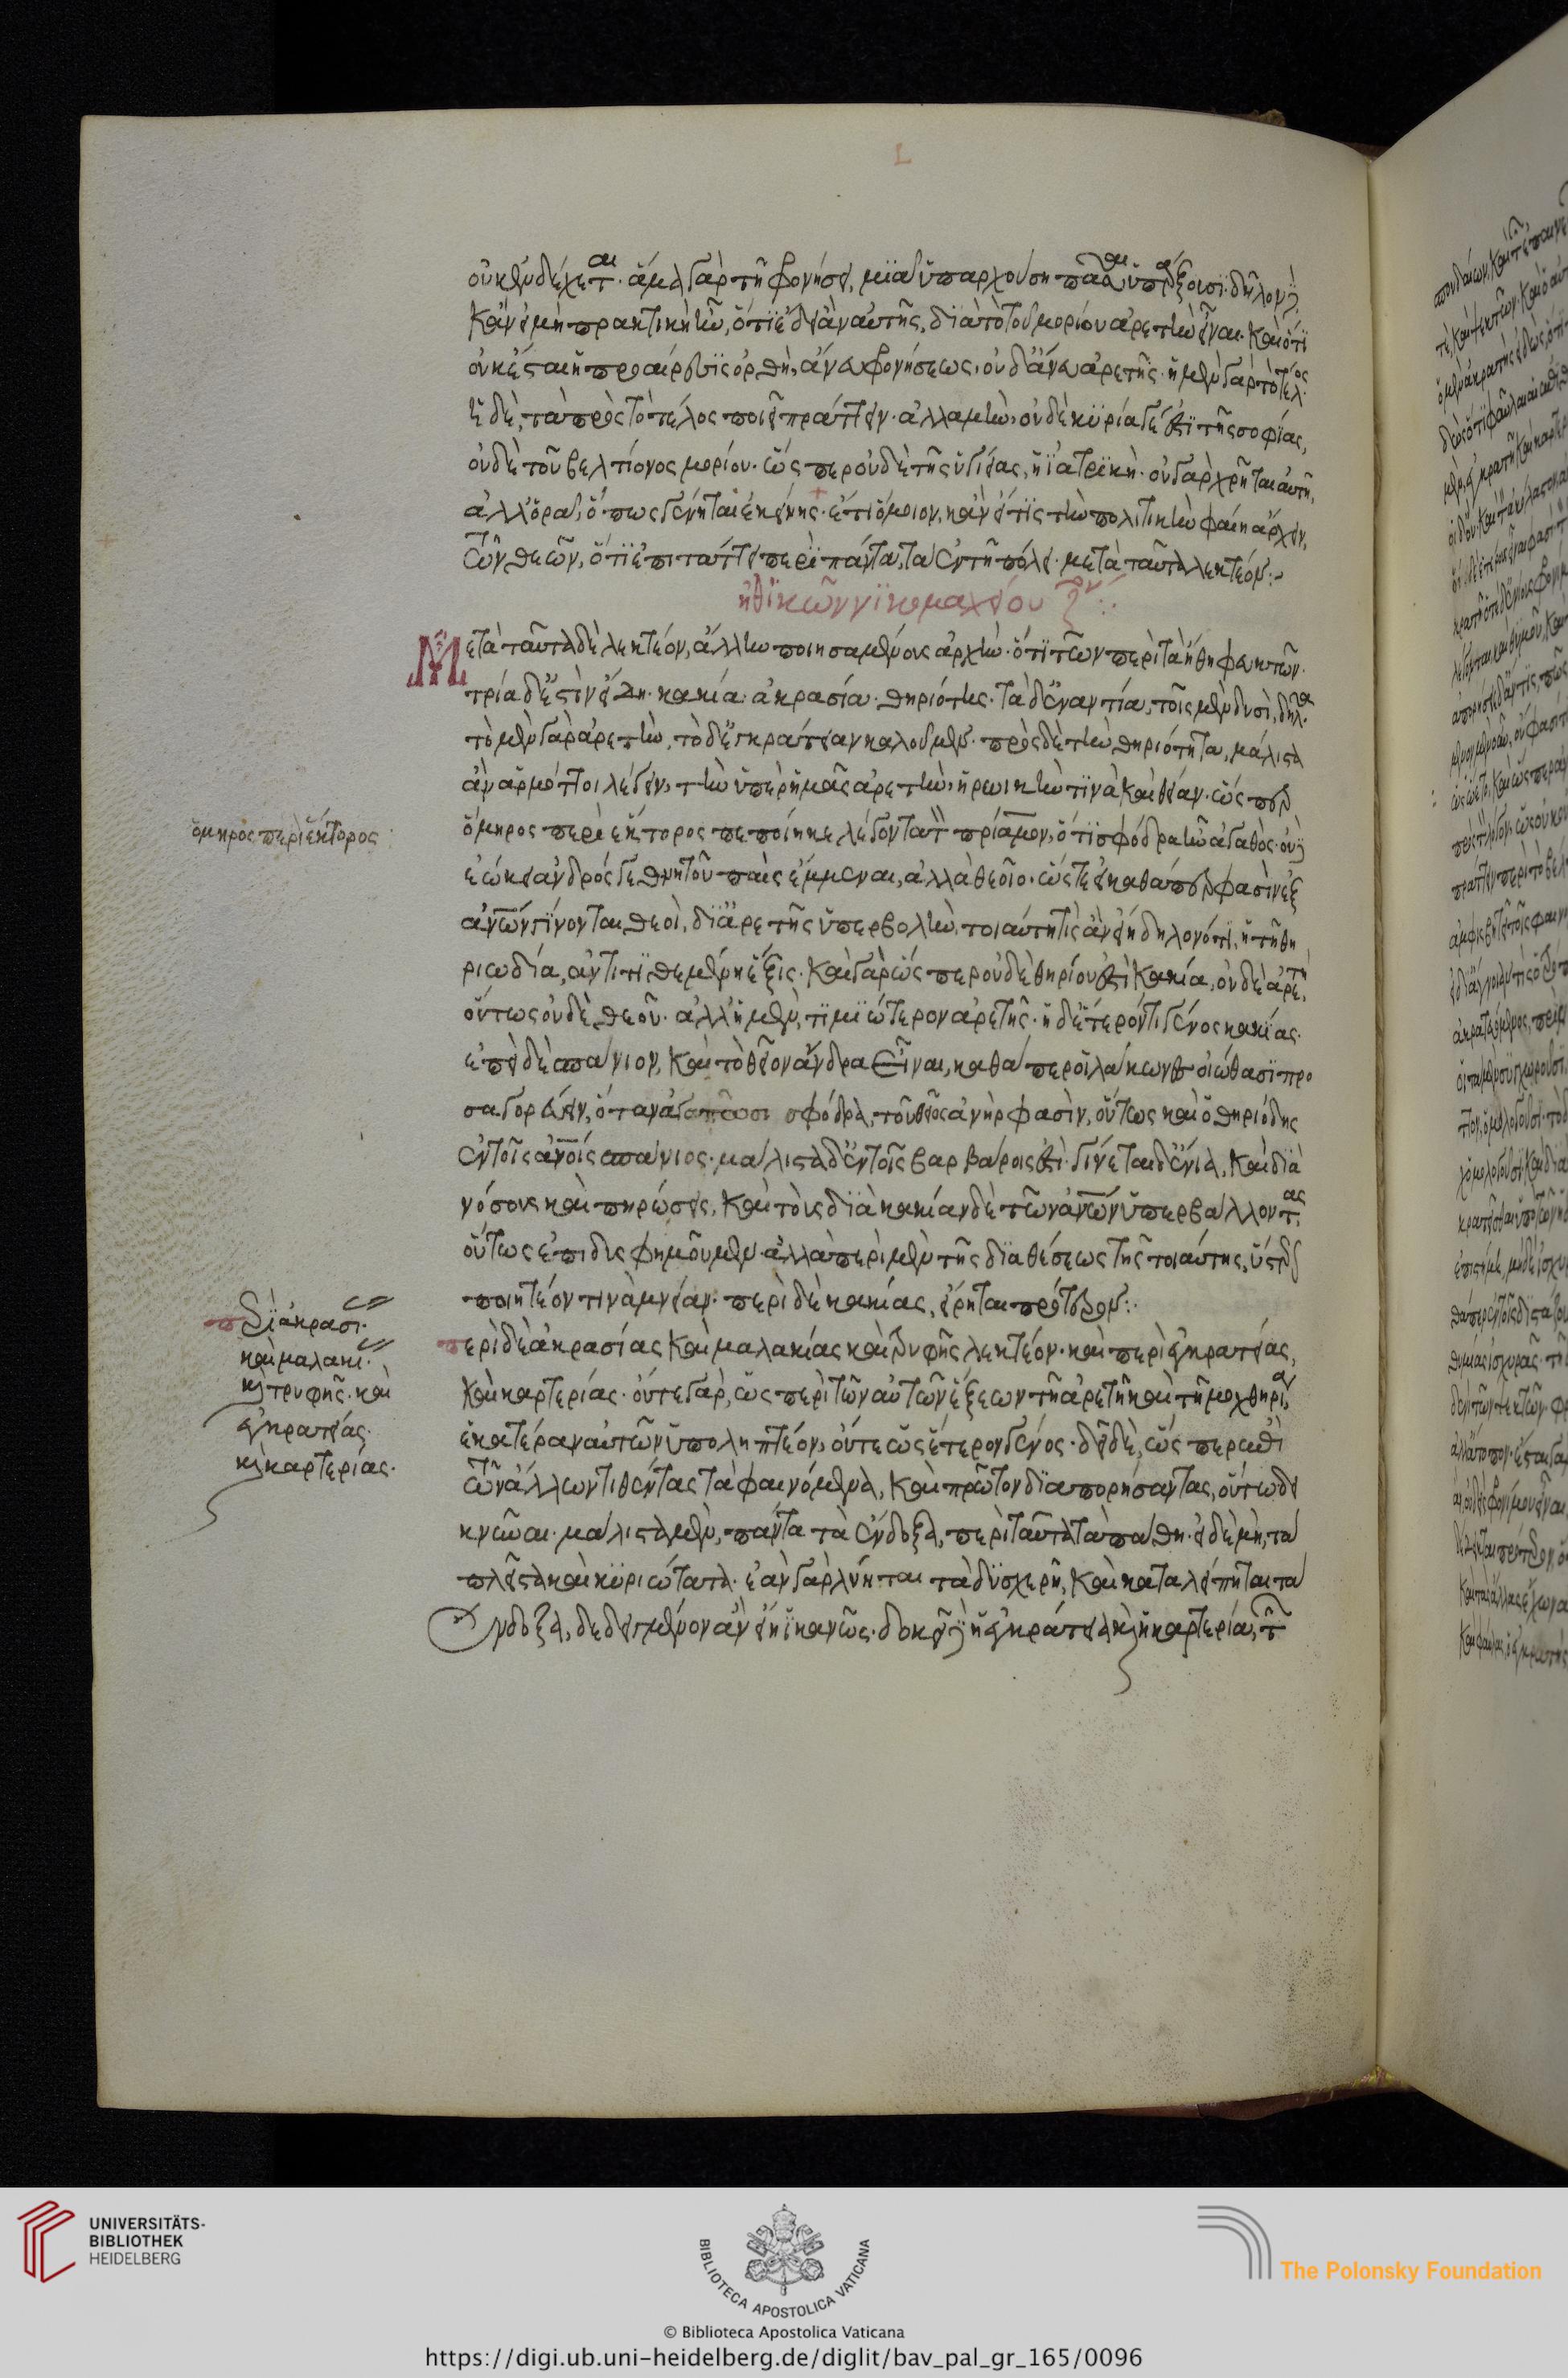 οὐκ ἐνδέχεται. ἅμα γὰρ τῆ φρονήσει, μϊᾶ ὑπαρχούση πᾶσαι ὑπάρξουσϊ. δῆλον δὲ
κἂν εἰ μὴ πρακτικὴ ἦν, ὅτϊ ἔδει ἂν αὐτῆς, δϊὰ τὸ τοῦ μορίου ἀρετὴν εἶναι. καὶ ὅτϊ
οὐκ ἔσται ἡ προαίρεσϊς ὀρθὴ, ἄνευ φρονήσεως, οὐδ' ἄνευ ἀρετῆς. ἡ μὲν γὰρ τὸ τέλος
ἡ δὲ, τὰ πρὸς τὸ τέλος ποιεῖ πράττειν. ἀλλὰ μὴν, οὐδὲ κϋρία γ' ἐστὶ τῆς σοφϊας,
οὐδὲ τοῦ βελτίονος μορίου. ὥσπερ οὐδὲ τῆς ὑγιείας, ἡ ϊατρϊκή. οὐ γὰρ χρῆται αὐτῆ,
ἀλλ' ὁρᾶ, ὅπως γένηται. ἐκείνης. ἔτι ὅμοιον, κἂν εἴ τϊς τὴν πολιτικὴν φαίη ἄρχειν,
τῶν θεῶν, ὅτϊ ἐπιτάττει περὶ πάντα, τὰ ἐν τῆ πόλει. μετὰ ταῦτα λεκτέον:~
ἠθϊκῶν νϊκομαχείου
Μετὰ ταῦτα δὲ λεκτέον, ἄλλην ποιησαμένους ἀρχὴν. ὅτϊ τῶν περὶ τὰ ἤθη φευκτῶν.
τρία δ' ἐστὶν εἴδη. κακία. ἀκρασία. θηριότης. τὰ δ' ἐναντία, τοῖς μὲν δυσὶ, δῆλα.
τὸ μὲν γὰρ ἀρετὴν, τὸ δ' ἐγκράτειαν καλοῦμεν. πρὸς δὲ τὴν θηριότητα, μάλιστα
ἂν ἁρμόττοι λέγειν, τὴν ὑπὲρ ἡμᾶς ἀρετὴν, ἡρωικὴν τϊνὰ καὶ θείαν. ὥσπερ
ὅμηρος περὶ ἕκτορος πεποίηκε λέγοντα τὸν πρίαμον, ὅτϊ σφόδρα ἦν ἀγαθὸς. οὐδὲ
ἐώκει ἀνδρός γε θνητοῦ παῖς ἔμμεναι, ἀλλὰ θεοῖο. ὥστ' εἰ καθάπερ φασὶν ἐξ
ἀνων γίνονται θεοὶ, δϊ' ἀρετῆς ὑπερβολὴν, τοιαύτη τὶς ἂν εἴη δηλονότι, ἡ τῆ θη
ριωδία, ἀντιτϊθεμένη ἕξις. καὶ γὰρ ὥσπερ οὐδὲ θηρίου ἐστὶ κακία, οὐδὲ ἀρετὴ,
οὕτως οὐδὲ θεοῦ. ἀλλ' ἡ μὲν, τϊμϊώτερον ἀρετῆς. ἡ δ' ἕτερόν τι γένος κακίας.
ἐπεὶ δὲ σπάνιον, καὶ τὸ θεῖον ἄνδρα εἶναι, καθάπερ οἱ λάκωνες εἰώθασϊ προ
σαγορεύειν, ὅταν ἀγασθῶσι σφόδρα, τοῦ θεῖος ἀνήρ φασὶν, οὕτως καὶ ὁ θηριώδης
ἐν τοῖς ἀνοις σπάνιος. μάλιστα δ' ἐν τοῖς βαρβάροις ἐστὶ. γίνεται δ' ἔνια, καὶ δϊὰ
νόσους καὶ πηρώσεις, καὶ τοὺς δϊὰ κακίαν δὲ τῶν ἀνων ὑπερβάλλοντας
οὕτως ἐπιδυσφημοῦμεν. ἀλλὰ περὶ μὲν τῆς δϊαθέσεως τῆς τοιαύτης, ὕστερον
ποιητέον τινὰ μνείαν. περὶ δὲ κακίας, εἴρηται πρότερον:.
περὶ δὲ ἀκρασίας καὶ μαλακίας καὶ τρυφῆς λεκτέον. καὶ περὶ ἐγκρατείας,
καὶ καρτερίας. οὔτε γὰρ, ὡς περὶ τῶν αὐτῶν ἕξεων τῆ ἀρετῆ καὶ τῆ μοχθηρία,
ἑκατέραν αὐτῶν ὑποληπτέον, οὔτε ὡς ἕτερον γένος. δεῖ δὲ, ὥσπερ ἐπὶ
τῶν ἄλλων τιθέντας τὰ φαινόμενα, καὶ πρῶτον δϊαπορήσαντας, οὕτω δει
κνύναι. μάλιστα μὲν, πάντα τὰ ἔνδοξα, περὶ ταῦτα τὰ πάθη. εἰ δὲ μὴ, τὰ
πλεῖστα καὶ κϋριώτατα. ἐὰν γὰρ λύηται τὰ δϋσχερῆ, καὶ καταλείπηται τὰ
ἔνδοξα, δεδειγμένον ἂν εἴη ἱκανῶς. δοκεῖ δὴ ἡ ἐγκράτεια καὶ ἡ καρτερία, τῶν
ὅμηρος περὶ ἕκτορος
περὶ ἀκρασίας
καὶ μαλακίας.
καὶ τρυφῆς. καὶ
ἐγκρατείας.
καὶ καρτερίας.
UNIVERSITÄTS-
BIBLIOTHEK
HEIDELBERG
BIBLIOTECA APOSTOLICA VATICANA
The Polonsky Foundation
© Biblioteca Apostolica Vaticana
https://digi.ub.uni-heidelberg.de/diglit/bav_pal_gr_165/0096